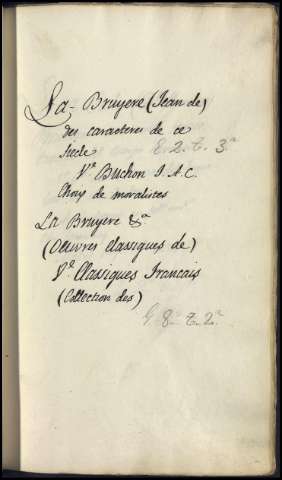 La-Bruyere (Jean de)
des caracteres de ce
siecle E. 2. t. 3ª
Vᵉ Buchon J. A. C.
Choix de moralistes
La Bruyere &ª
(Oeuvres classiques de)
Vᵉ Classiques Francais
(Collection des)
G 8ª t. 2ª.